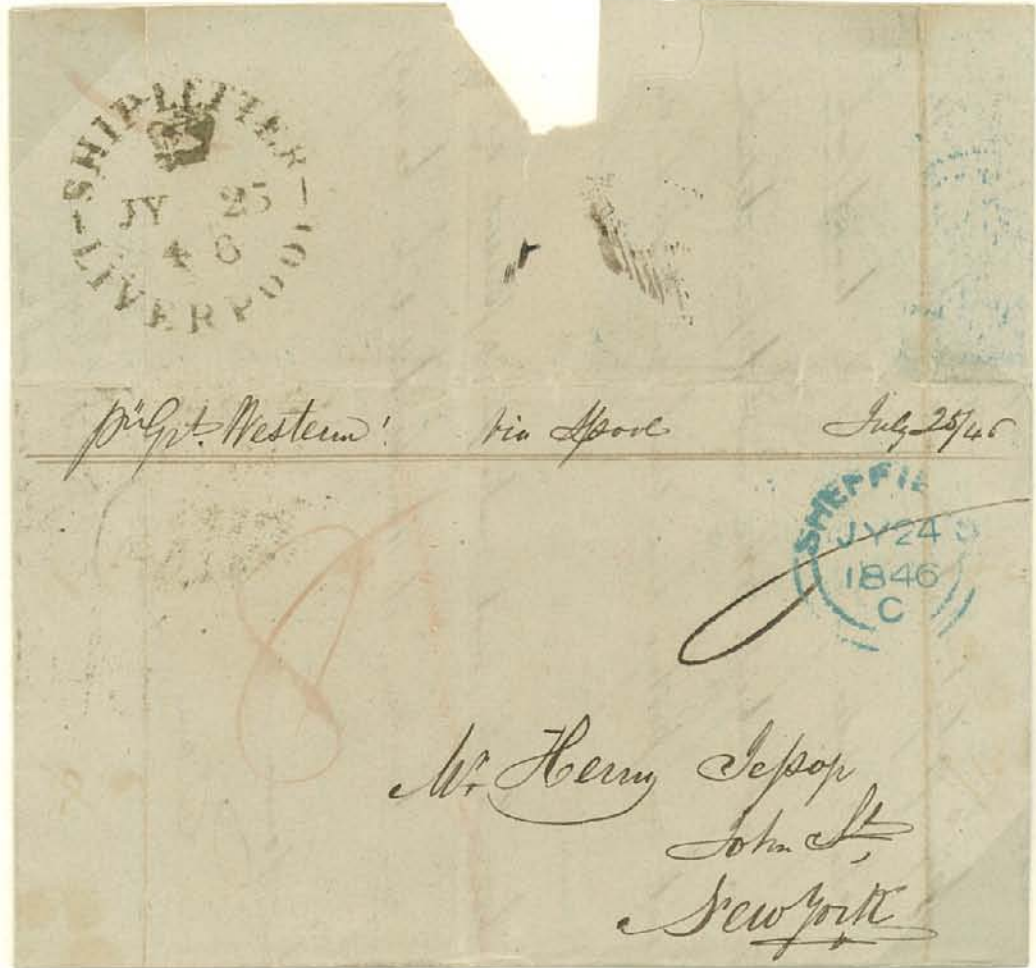 SHIP LETTER
JY 25
46
LIVERPOOL
pr Grt. Western! via Lpool July 25/46
SHEFFIE
JY 24
1846
C
8
Mr Henry Jessop
John St,
New York